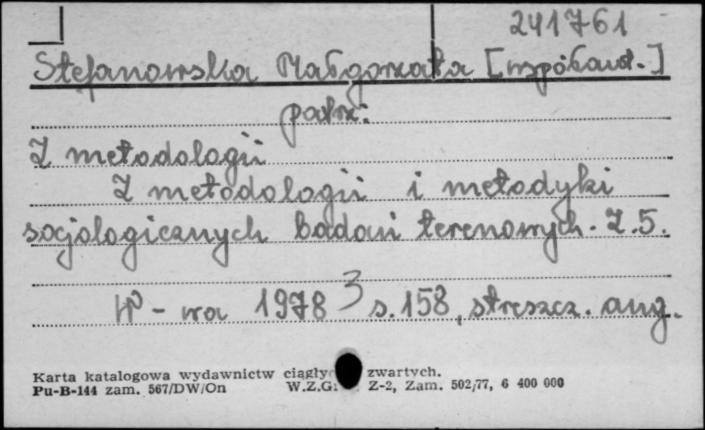 241761
Stefanowska Małgorzata [współaut.]
patrz:
Z metodologii
Z metodologii i metodyki
socjologicznych badań terenowych. Z.5.
W-wa 1978 s.158, streszcz. ang.
Karta katalogowa wydawnictw ciągły zwartych.
Pu-B-144 zam. 567/DW/On W.Z.G. Z-2, Zam. 502/77, 6 400 000